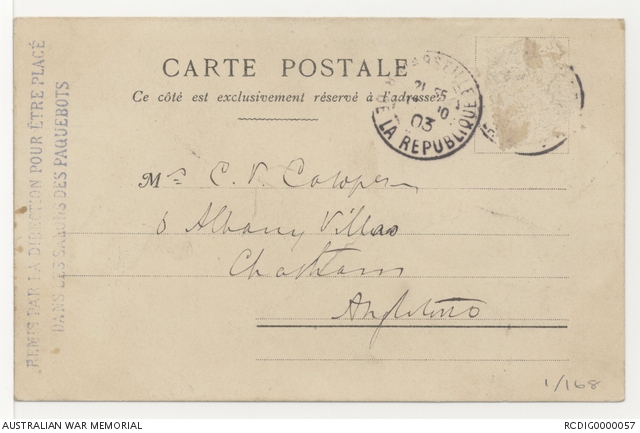 CARTE POSTALE
Ce côté est exclusivement réservé à l'adresse.
MARSEILLE
R. DE LA REPUBLIQUE
03
Mrs C. V. Cowper
8 Albany Villas
Chatham
Angleterre
REMIS PAR LA DIRECTION POUR ÊTRE PLACÉ
DANS LES SALONS DES PAQUEBOTS
1/168
AUSTRALIAN WAR MEMORIAL
RCDIG0000057